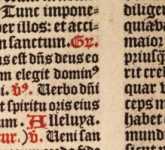 Tunc impone-
per illos: et acci-
n sanctum. Gr.
us est dñs deus eo
m elegit dominꝰ
i. v̄s. Verbo dñi
t spiritu oris eius
um. Alleluya.
ur. v̄. Ueni san
diligen
quiba
maxim
priusq̄
rit cred
bus su
cessimu
habet
mundi